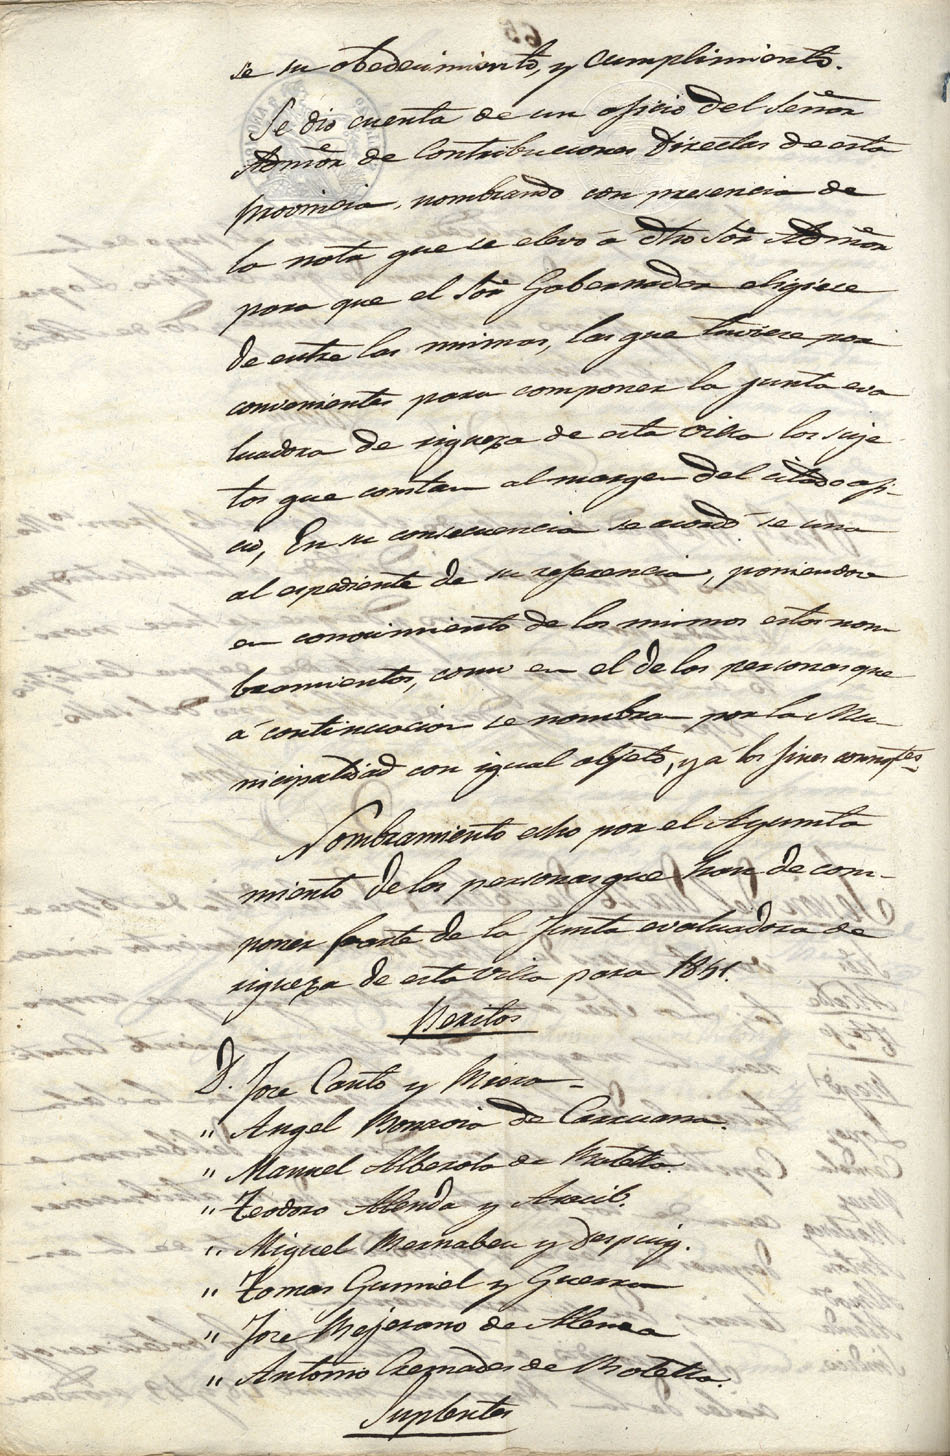 se su obedecimiento, y cumplimiento.
Se dio cuenta de un oficio del Señor
Admor de Contribuciones Directas de esta
provincia, nombrando con presencia de
la nota que se elevó á dho Sor Admor
para que el Sor Gobernador eligiese
de entre las mismas, las que tuviese por
convenientes para componer la junta eva
luadora de riqueza de esta villa los suje
tos que constan al margen del citado ofi-
cio, En su consecuencia se acordó se una
al espediente de su referencia, poniendose
en conocimiento de los mismos estos nom
bramientos, como en el de las personas que
á continuacion se nombran por la Mu-
nicipalidad con igual objeto, y á los fines consigtes
Nombramiento echo por el Ayunta
miento de las personas que han de com-
poner parte de la Junta evaluadora de
riqueza de esta villa para 1851.
Peritos
D. Jose Canto y Miora-
" Angel Monzoia de Carruana.
" Manuel Alberola de Botella.
" Teodoro Alenda y Aracil.
" Miguel Bernabeu y Despuig.
" Tomas Gumiel y Guerra
" Jose Bejerano de Alenda
" Antonio Cremades de Botella.
Suplentes